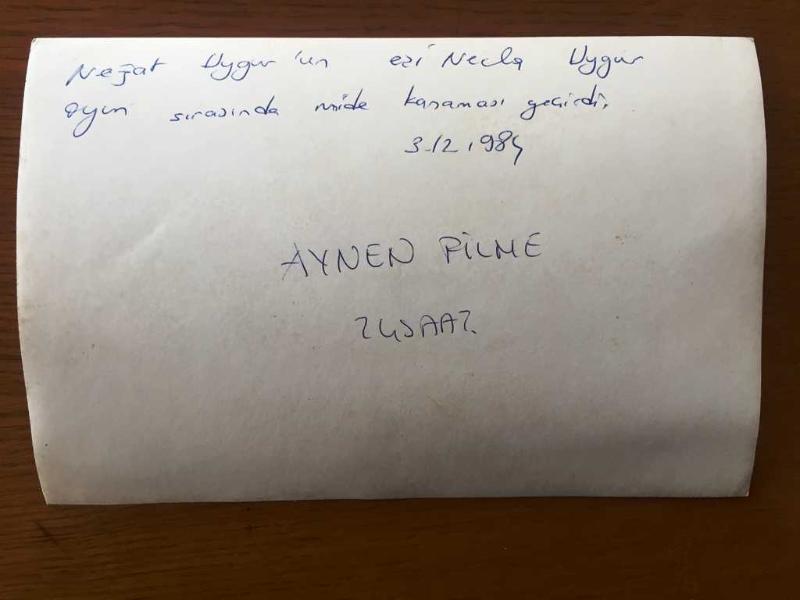 Nejat Uygur'un eşi Necla Uygur
oyun sırasında mide kanaması geçirdi.
3.12.1984
AYNEN FİLME
24SAAT.